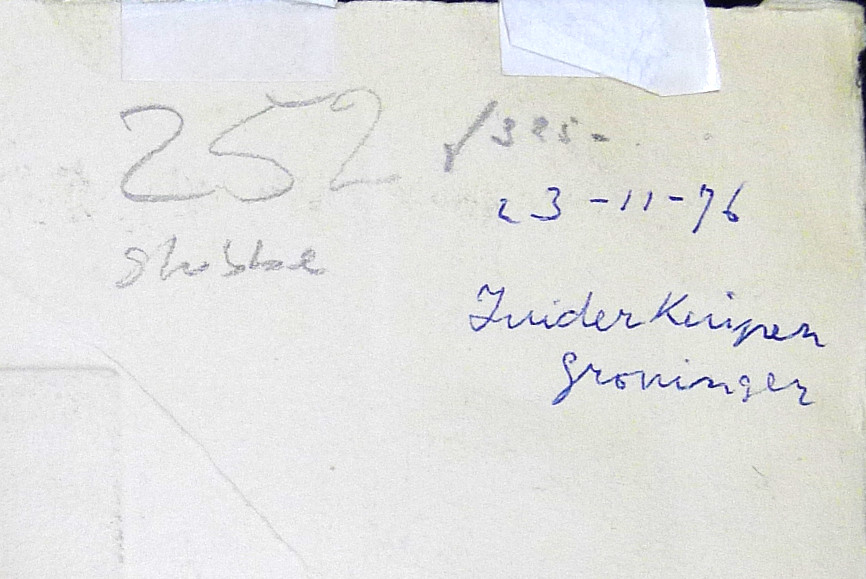 252
325-
23-11-76
Zuiderkuipen
Groningen